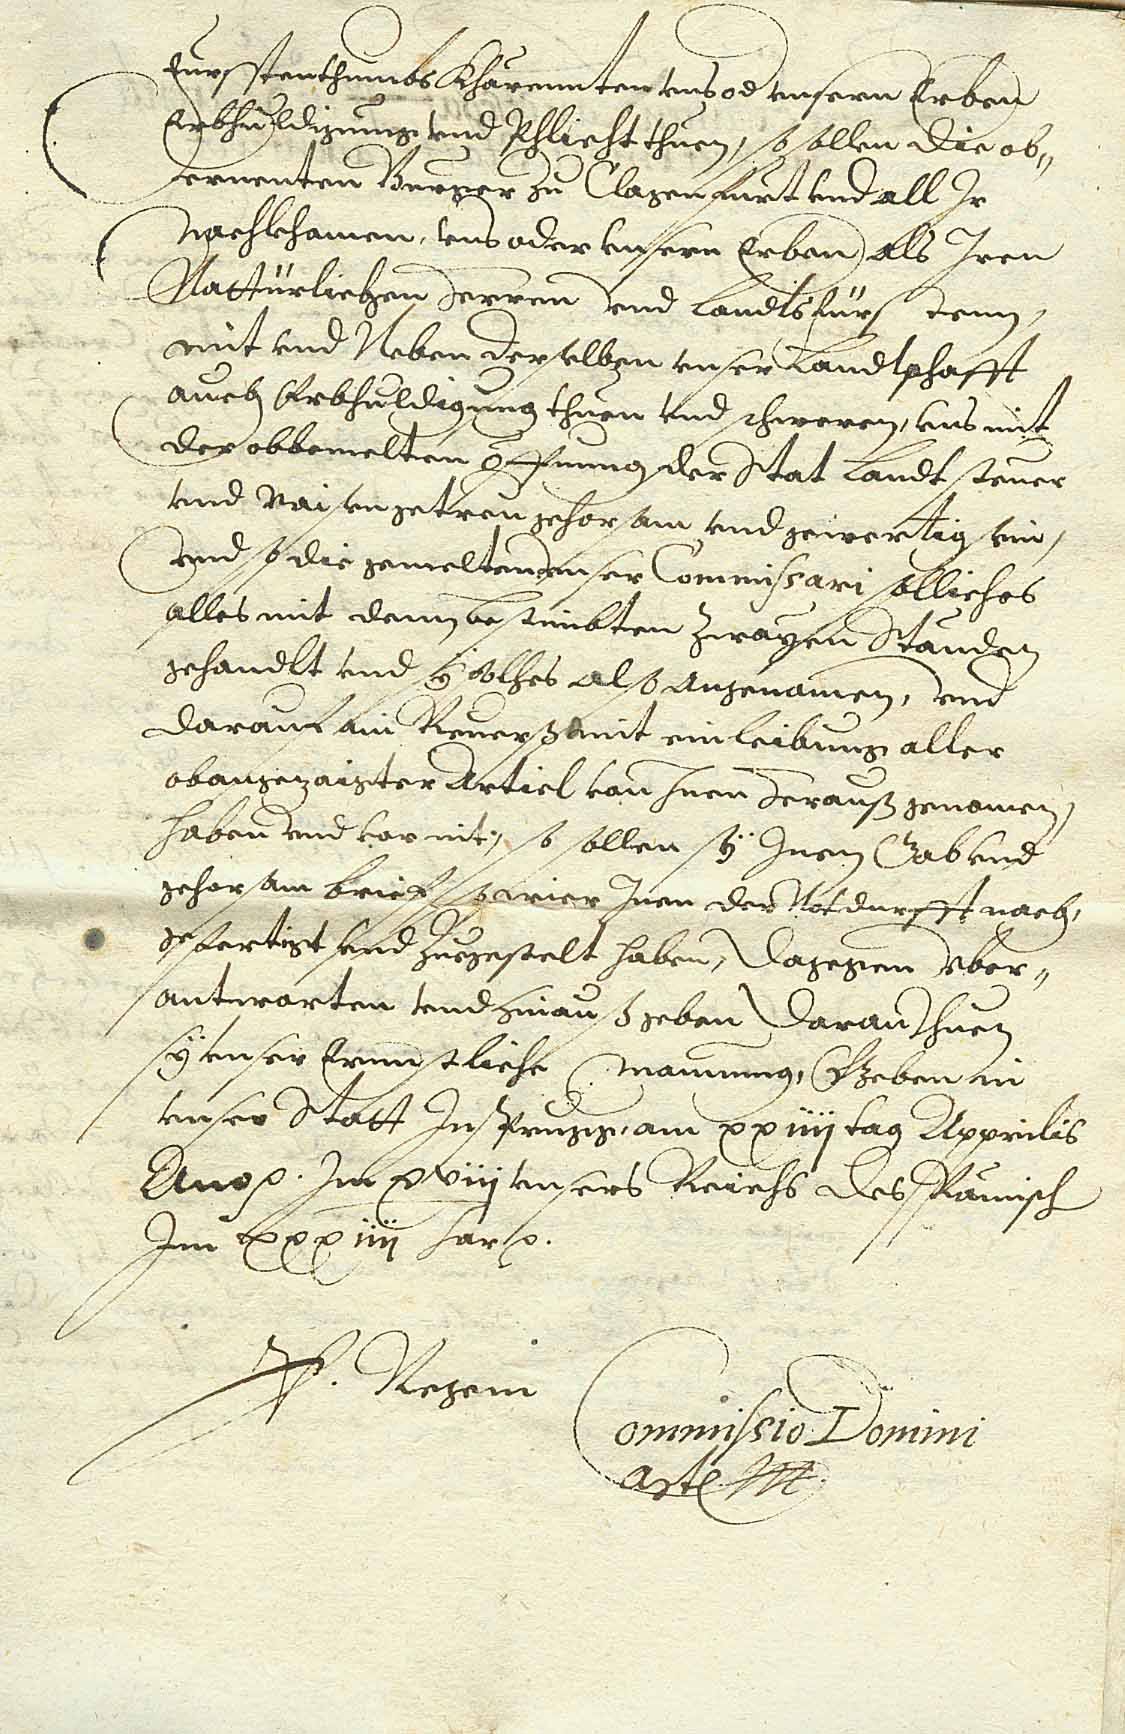 Furstenthumbs Khärennten unns od unsern Erben
Erbhuldigung unnd Phlicht thuen, so sollen die ob-
ernenten Burger zu Clagenfurt unnd all Ir
Nachkhomen, uns oder unsern Erben als Iren
Nattürlichen Herren und Landtsfürstenn,
mit und Neben derselben unser Landtschafft
auch Erbhuldigung thuen und schweren, uns mit
der obbemelten Öffnung der Stat Landtsteuer
und Raisen getreu gehorsam und gewertig sein,
und so die gemelten unser Commissari solliches
alles mit denn bestimbten zwayen Stanndten
gehandlt und sy solhes also angenomen, und
darauf ain Reverß mit einleibung aller
obangezaigter Articl von Inen heraus genomen,
haben und vor nit, so sollen sy Inen Gab und
gehorsam brief so wier Inen der Notdurfft nach,
gefertigt und zuegestelt haben, dagegen uber-
antworten und hinauß geben Daran thuen
sy unser Ernnstliche mainung, Geben in
unser Statt Insprugg, am xxiiij tag Apprilis
Anno p. Im xviij unsers Reichs des Römisch
Im xxxiiij Jar p.
p. Regem
Commissio Domini